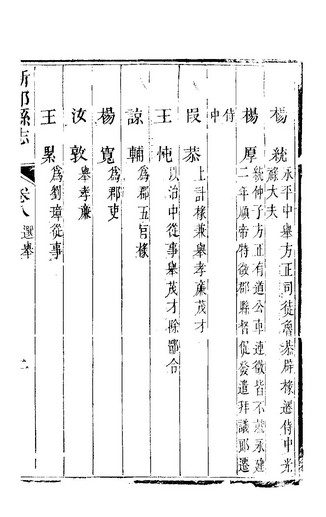 楊統 永平中舉方正司徒魯恭辟掾遷侍中光
祿大夫
楊厚 統仲子方正有道公車連徵皆不就永建
二年順帝特徵郡縣督促發遣拜議郎遷
侍中
段恭 上計掾兼舉孝廉茂才
王忳 以治中從事舉茂才除郿令
諒輔 為郡五官掾
楊寬 為郡吏
汝敦 舉孝廉
王累 為劉璋從事
新都縣志 卷八 選舉 二